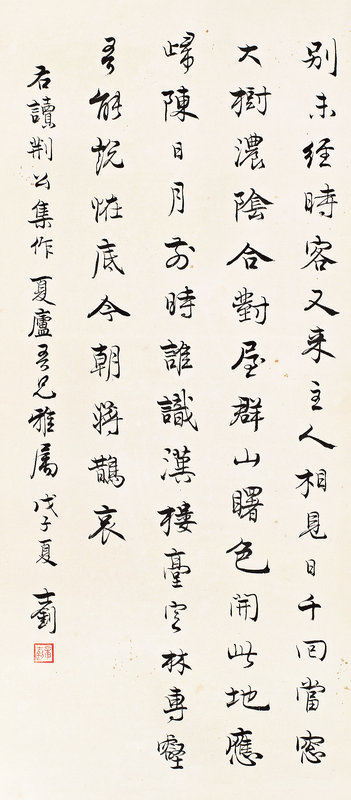 別未經時客又来主人相見日千囘當窓
大樹濃陰合對屋群山曙色開此地應
歸陳日月前時誰識漢樓臺空林專壑
吾能悅恠底今朝將鵲哀
右讀荆公集作夏廬吾兄雅屬戊子夏士釗